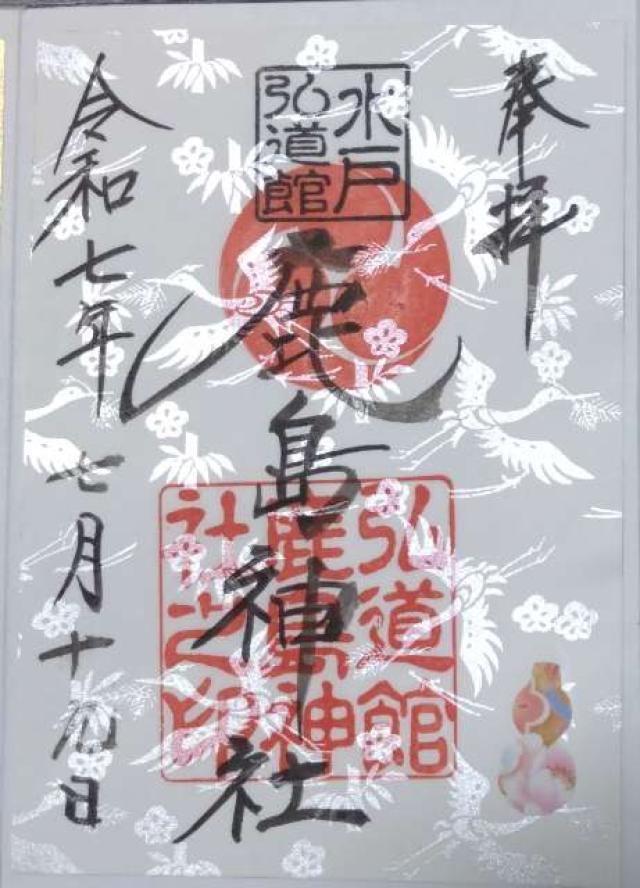 奉拝
水戸
弘道館
鹿島神社
弘道館
鹿島神
社之印
令和七年七月十九日